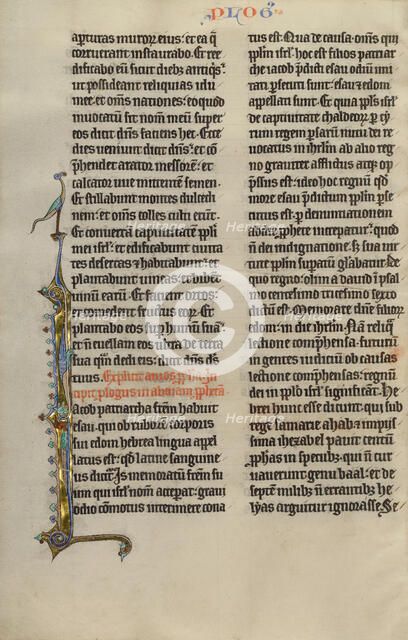 PLOG9
apturas muroꝝ eius: et ea q̄
corruerant instaurabo. Et ree
dificabo eū sicut dieb3 antiq̄s:
ut possideant reliquias idu
mee: et om̄s nationes: eo quod
inuocatū sit nom̄ meū super
eos dicit dn̄s faciens hec. Ecce
dies ueniunt dicit dn̄s: et co
p̄hendet arator messorē: et
calcator uue mittentē semen.
Et stillabunt montes dulcedi
nem: et om̄s colles culti erūt.
Et conuertā captiuitatē ppli
mei isrl: et edificabunt ciuita
tes desertas ⁊ habitabunt: et
plantabunt uineas: et bibēt
uinū earū. Et facient ortos:
et comedent fructus eoꝝ. Et
plantabo eos sup humū suā:
et n̄ euellam eos ultra de terra
sua qua dedi eis: dicit dn̄s ds̄
tuus. Explicit amos ꝓpħa. In
cipit plogus in abdiam ꝓphetā
Iacob patriarcha frēm habuit
esau. qui ob ruborē corporis
sui edom hebrea lingua appel
latus est: qd̄ latine sanguine
us dicit᷑. Is memoratū frēm su
um qui isrl nom̄ acceperat: graui
odio cōmotus intermere cona
tus est. Qua de causa. om̄s qui
pplm isrl. hoc est filios patriar
che iacob p̄dicta esau odiū imi
tati persecuti sunt: esau ⁊ edom
appellati sunt. Et quia ppls isrl
de captiuitate chaldeoꝝ per cy
rum regem persarū nutu dei re
uocatus in ihrlm ab alio reg
no grauiter afflictus atq3 op
pressus est: ideo hoc regnū qd̄
more esau p̄dictum pplm per
secutus est. per denuntiationem
abdie ꝓphete increpatur: quod
n̄ dei indignatione. s3 sua uir
tute pplm supatū gl̄abatur. De
quo regno olim a dauid ī psal
mo centesimo tricesimo sexto
dictū ē. Memorare dn̄e filioꝝ
edom: in die ihrlm. Nā reliq̄
lectione cōprehensa: futurū
in gentes iudiciū ob causas
lectione cōprehensas: regnū
dei in pplo isrl significāt. He
brei hunc esse dicunt: qui sub
rege samarie ahab ⁊ impiis
sima iezabel pauit centū
ꝓphas in specub3: qui n̄ cur
uauerunt genu baal: et de
septem milib3 n̄ errantib3 he
lyas arguitur ignorasse. Se